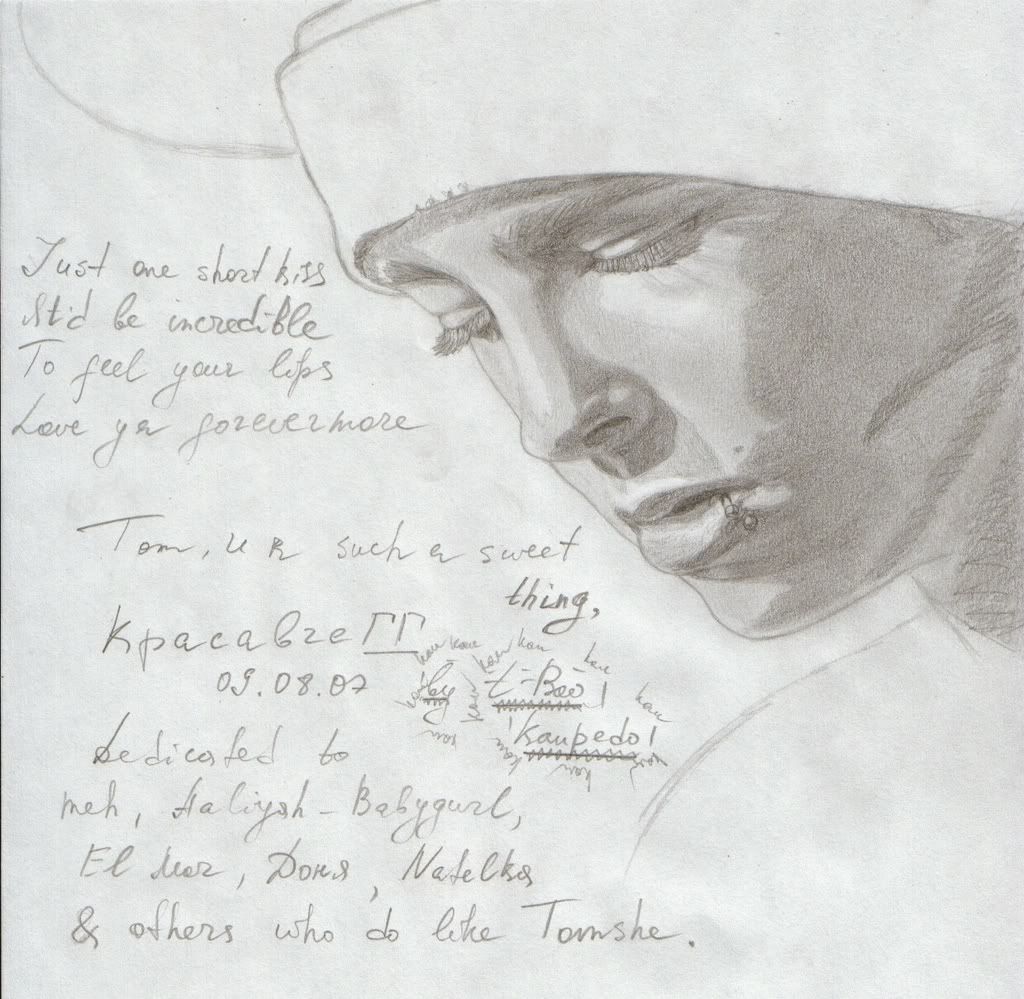 Just one short kiss
It'd be incredible
To feel your lips
Love ya forevermore
Tom, u R such a sweet
thing,
КрасавгеГГ
09.08.07
by t-Bao!
Kaupedo!
Dedicated to
meh, Aaliyah-Babygurl,
El Mar, Доня, Natelka
& others who do like Tomshe.